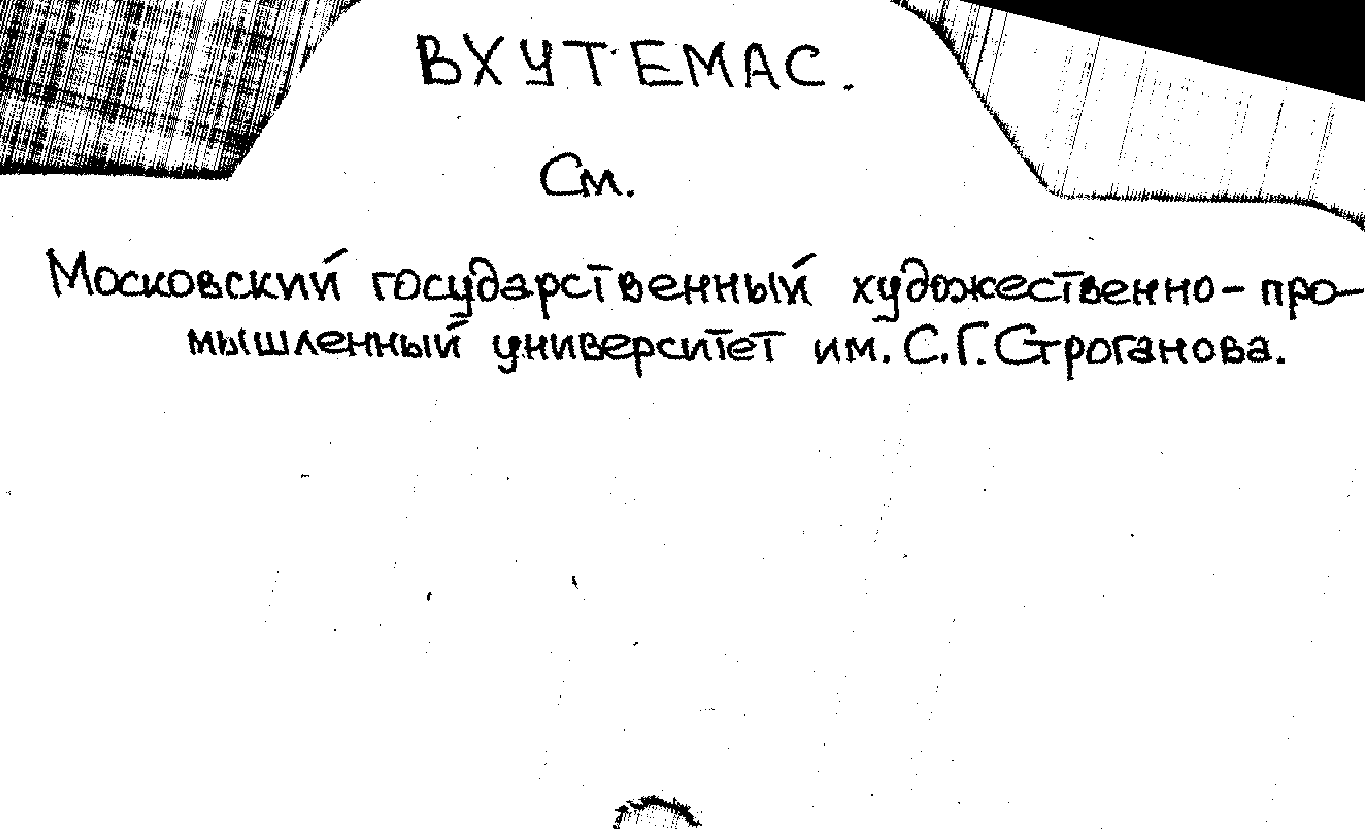 ВХУТЕМАС.
См.
Московский государственный художественно-про-
мышленный университет им. С.Г. Строганова.